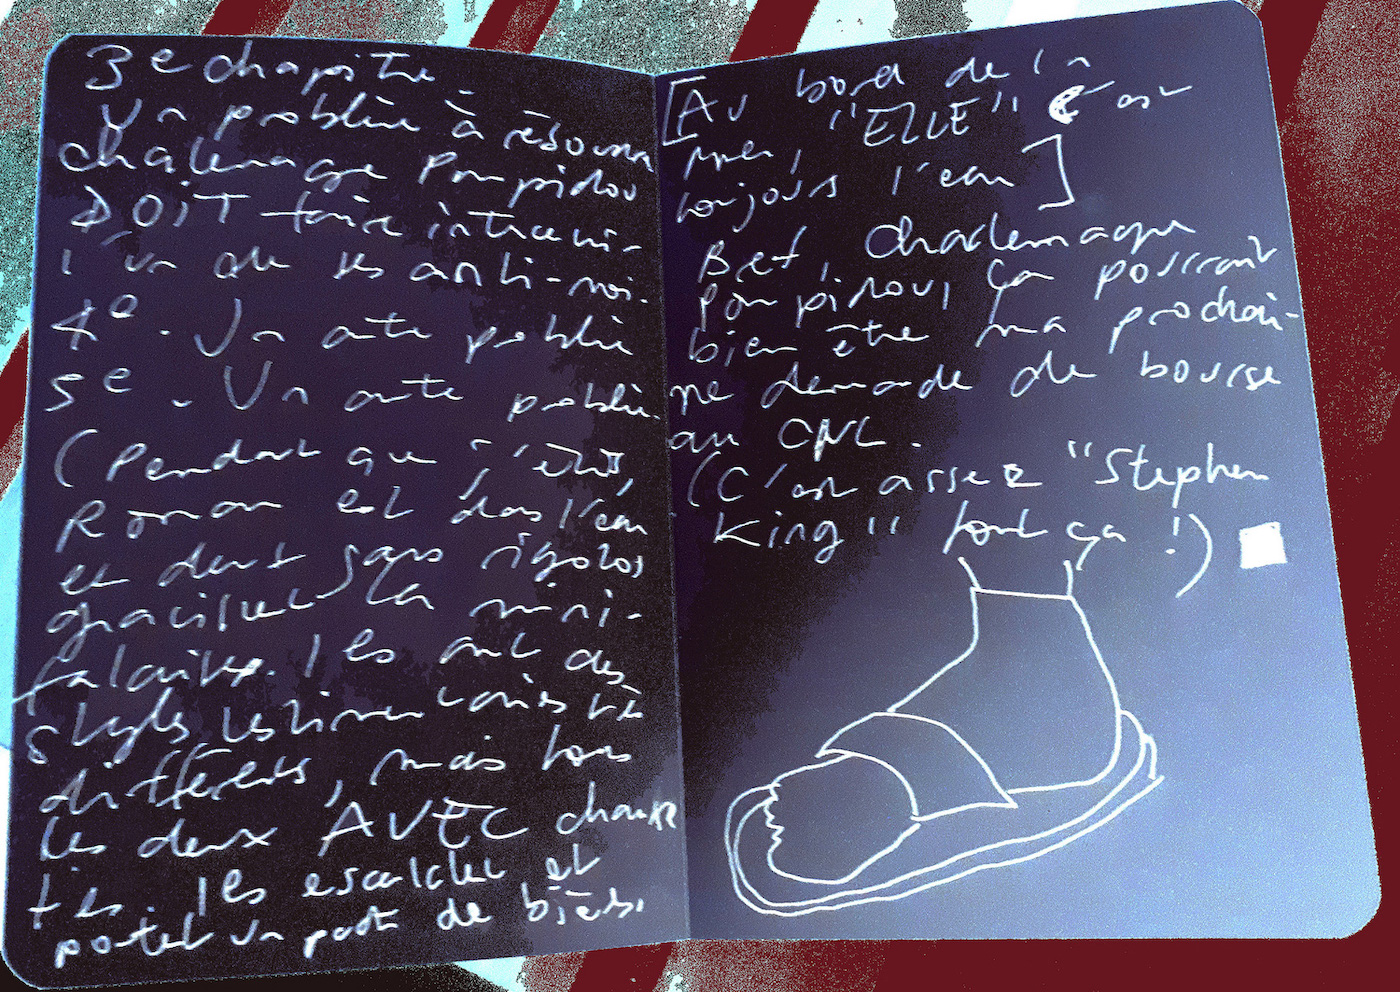 3e chapitre.
Un problème à résoudre
Charlemagne Pompidou
DOIT faire interveni-
l'un de ses anti-moi.
4e. Un autre problème
5e. Un autre problème.
(Pendant que j'écris,
Ronan est dans l'eau
et deux gars rigolos
la mini-
falaise. Ils ont des
styles vestimentaires très
différents, mais tous
les deux AVEC chaus
Ils escaladent et
portent un pack de bières.
[Au bord de la
mer, "ELLE" c'est
toujours l'eau]
Bref, Charlemagne
Pompidou, ça pourrait
bien être ma prochai-
ne demande de bourse
au CNL.
(C'est assez "Stephen
King" tout ça !)